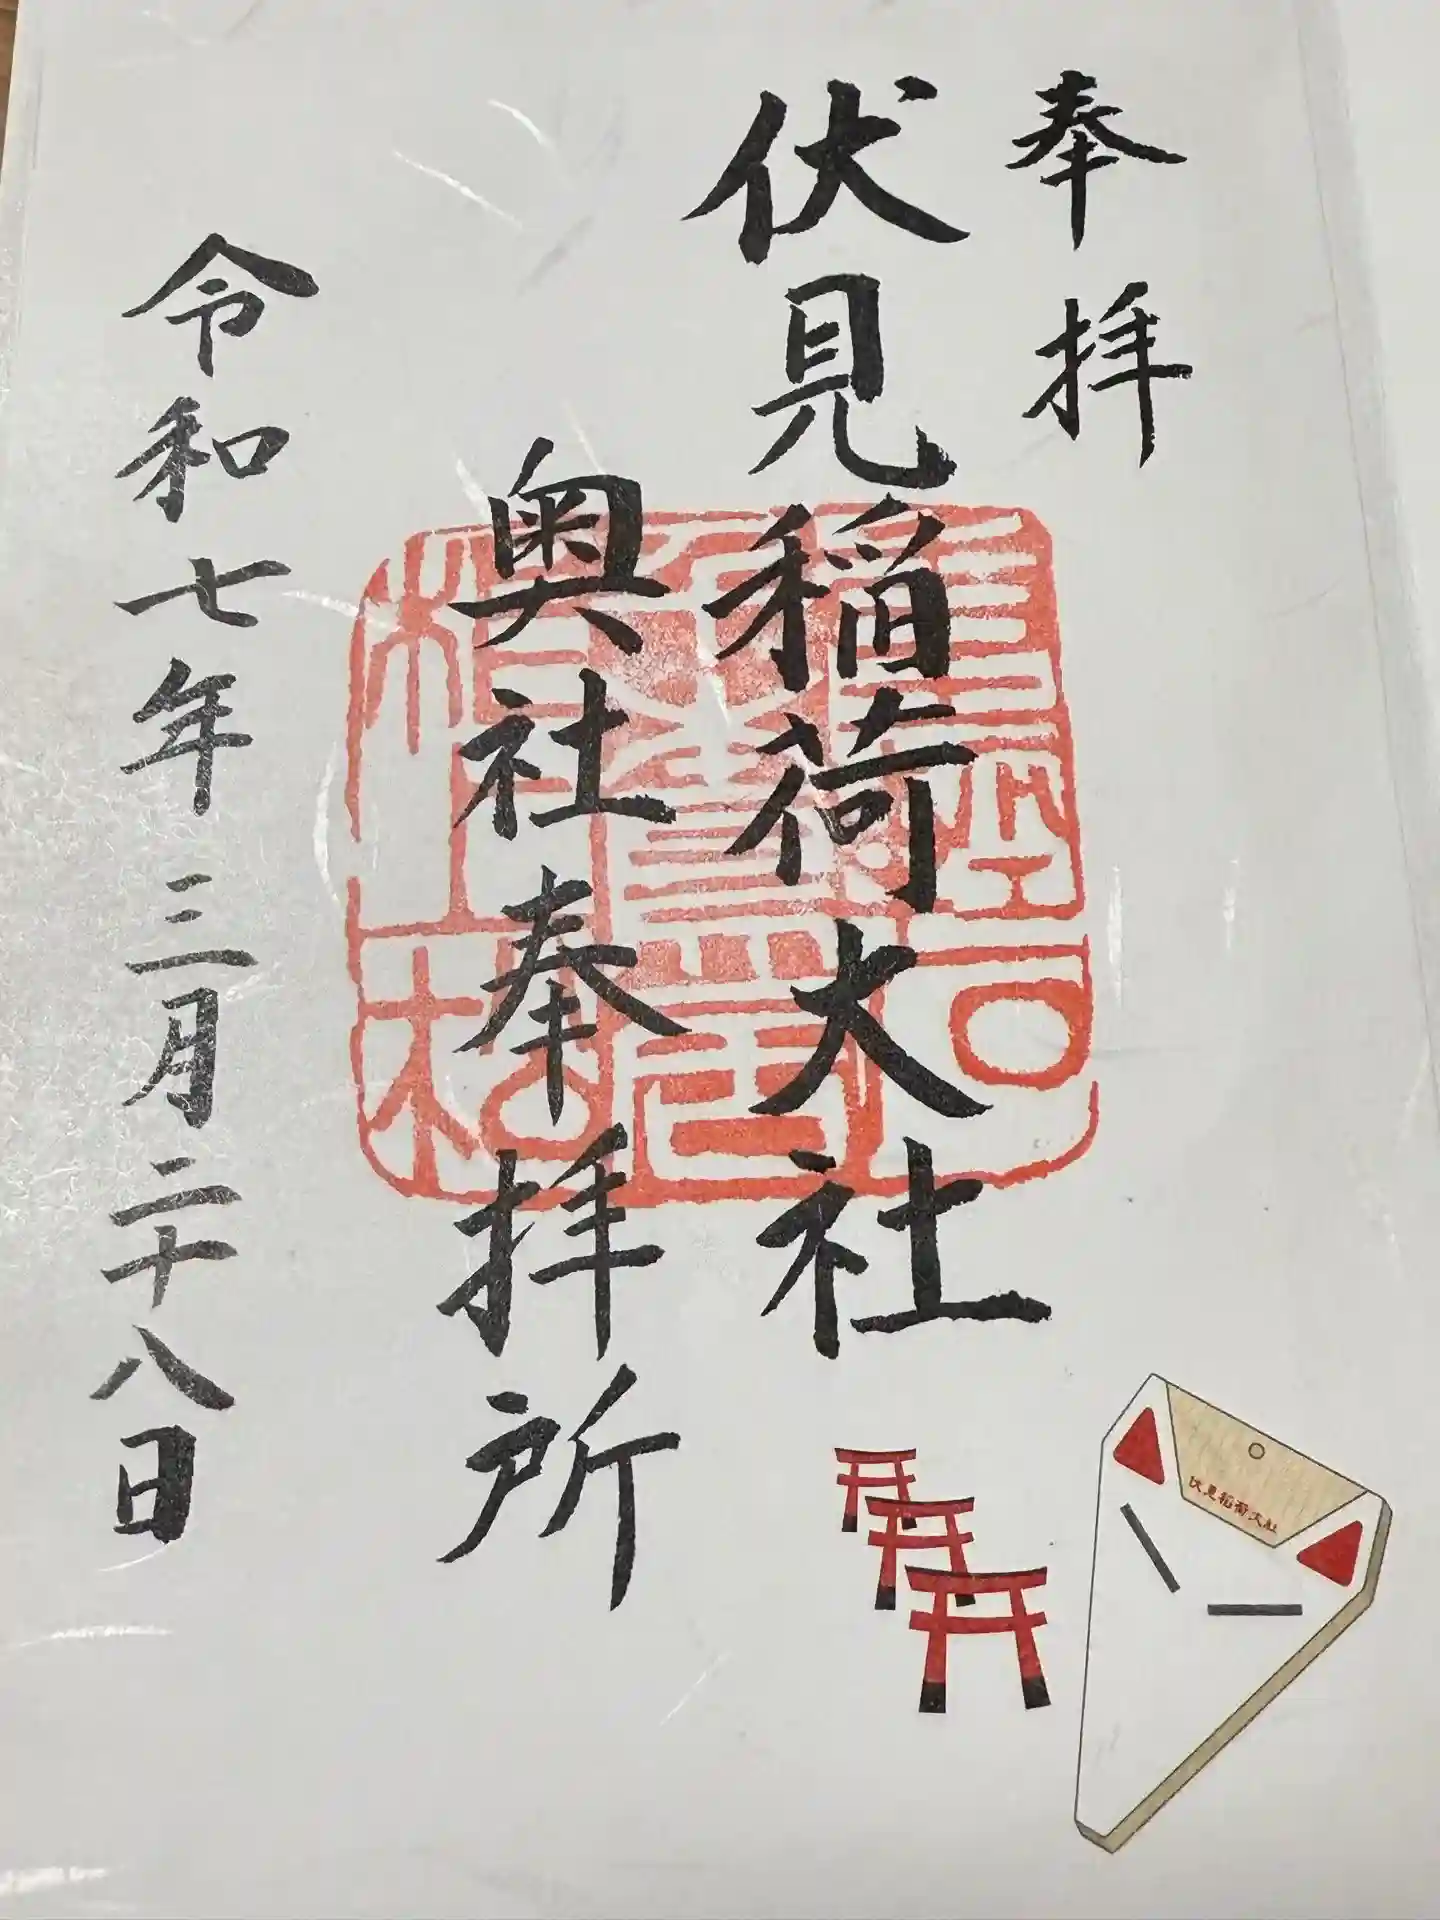 奉拝
伏見稲荷大社
奥社奉拝所
令和七年三月二十八日
伏見稲荷大社